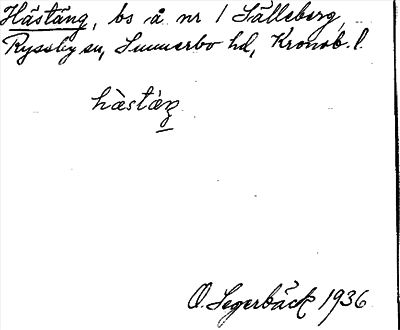 Hästäng, bs å nr 1 Sälleberg,
Ryssby sn, Sunnerbo hd, Kronob. l.
hàstáŋ
O. Segerbäck 1936